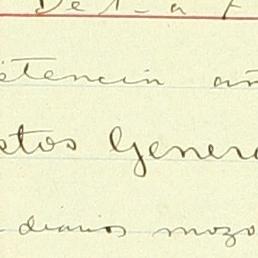 De 1 - a
stencia añ
stos Genera
diarios mozo